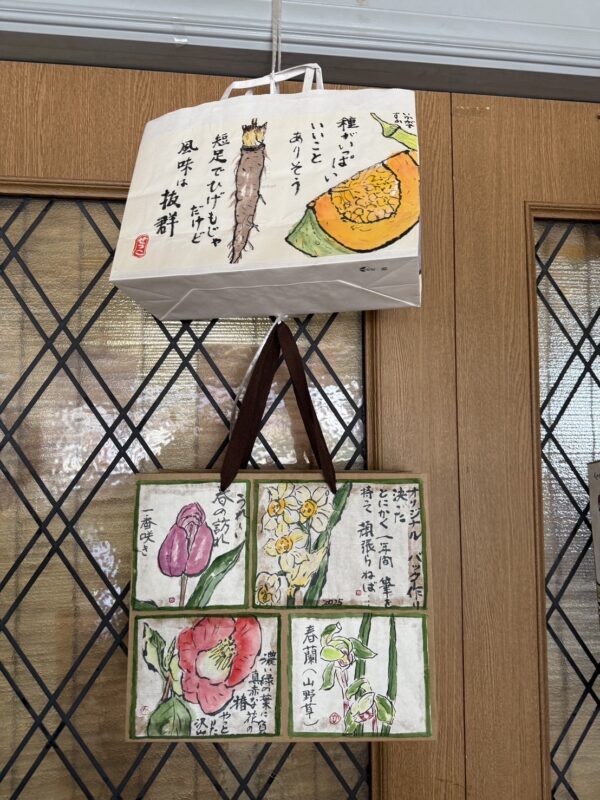 種がいっぱい
いいこと
ありそう
短足でひげもじゃ
だけど
風味は
抜群
うれしい
春の訪れ
一番咲き
オリジナル バック作り
決った
とにかく一年間 筆を
持って 頑張らねば…
2025
濃い緑の葉に
真赤な花の
椿
やっと
沢山
春蘭(山野草)